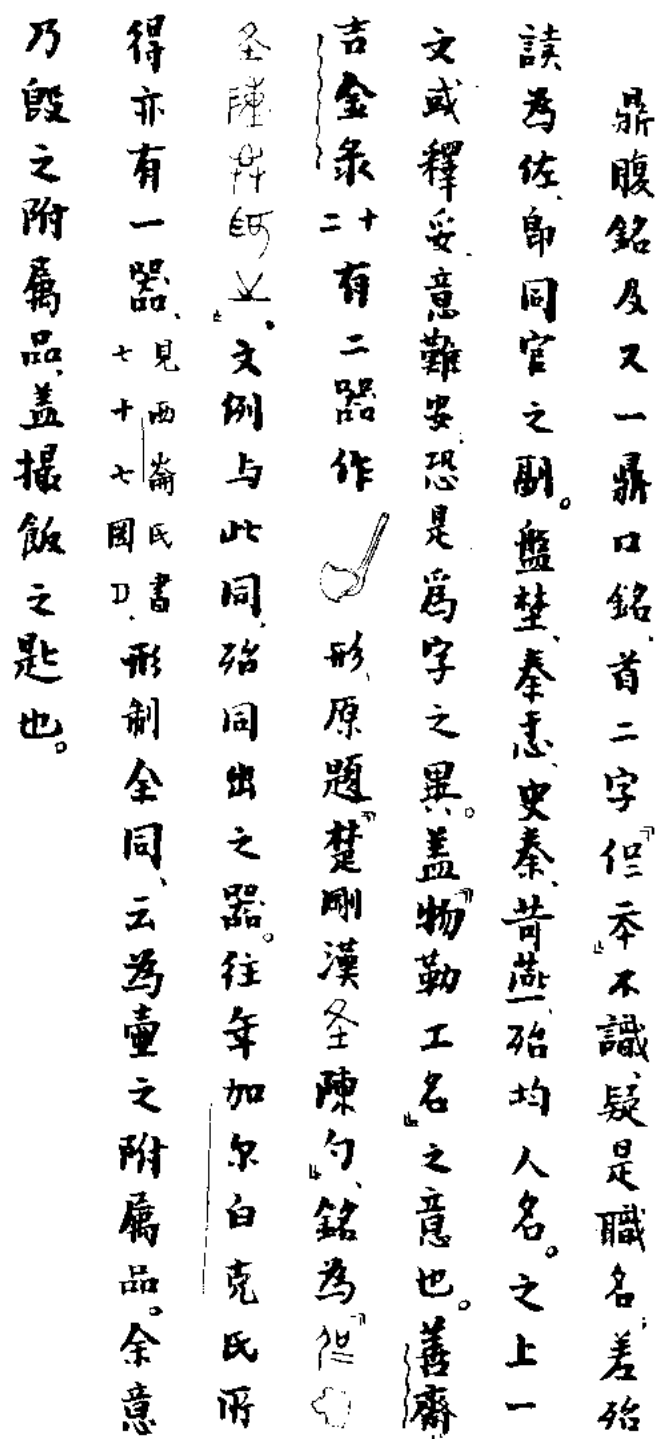 鼎腹銘及又一鼎口銘、首二字『但𠦪』不識、疑是職名；差殆
讀為佐、即同官之副。盤埜、秦忎、史秦、苛燕、殆均人名。之上一
文或釋妥、意難安；恐是為字之異。蓋『物勒工名』之意也。善齋
吉金彔二十二有二器作 形、原題『楚剛漢圣陳勺』、銘為『但
圣陳共為之』。文例与此同、殆同出之器。往年加尔白克氏所
得亦有一器、見西崙氏書七十七國D、形制全同、云為壷之附屬品。余意
乃𣪘之附屬品、盖撮飯之匙也。